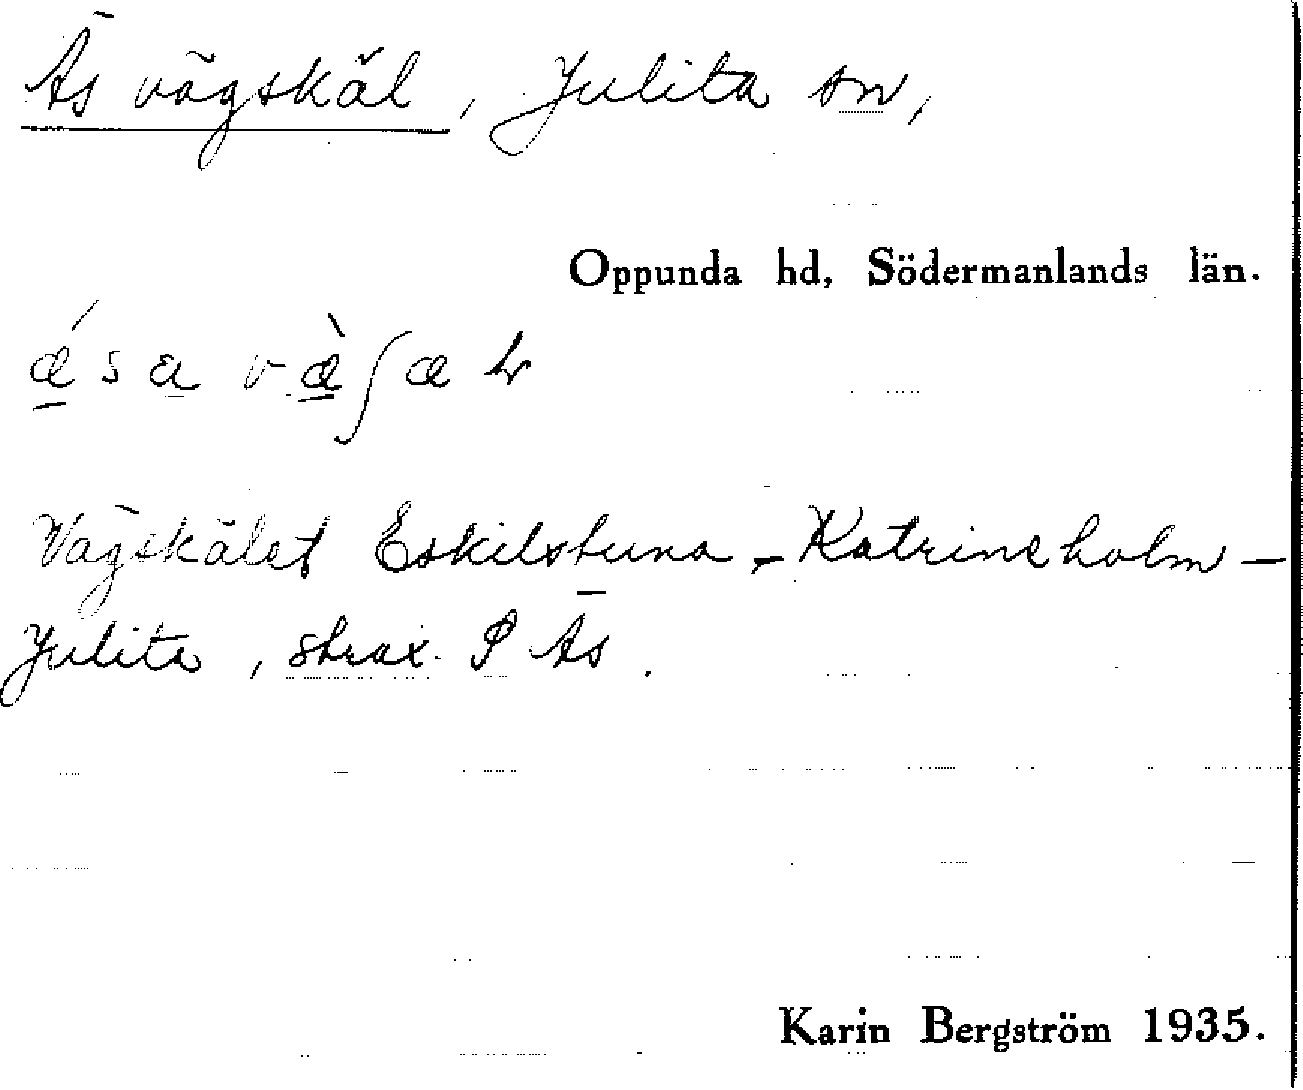 Äs vägskäl, Julita sn,
Oppunda hd, Södermanlands län.
ǽsa væ̀ʃæɫ
Vägskälet Eskilstuna - Katrineholm -
Julita, strax S Äs.
Karin Bergström 1935.